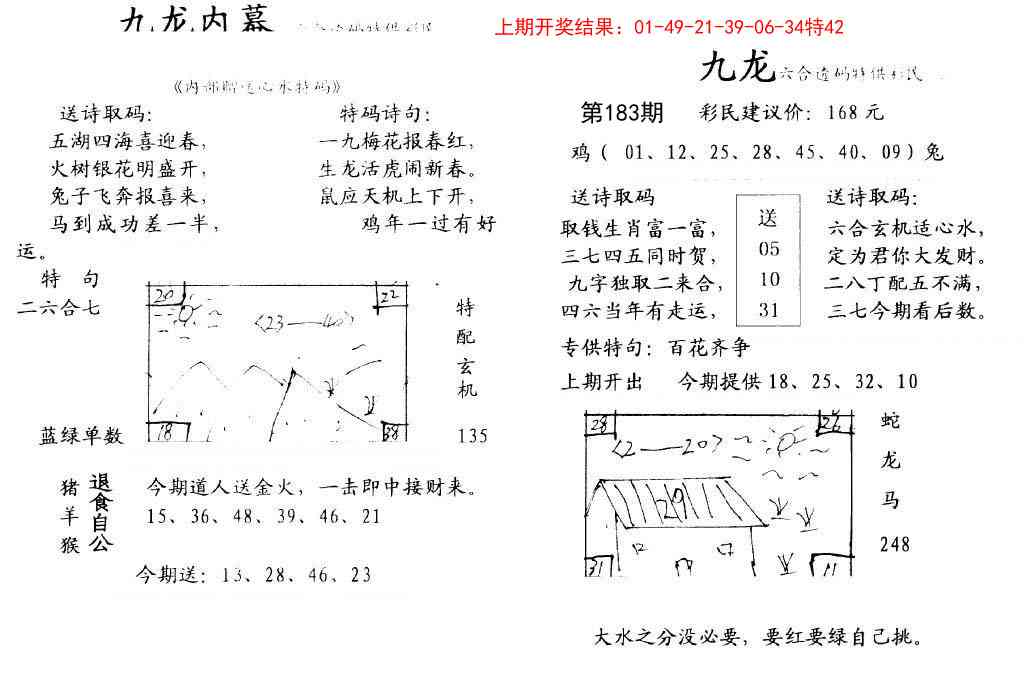 九龙内幕
上期开奖结果：01-49-21-39-06-34特42
《内部赠送心水特码》
送诗取码：
五湖四海喜迎春，
火树银花明盛开，
兔子飞奔报喜来，
马到成功差一半，
特码诗句：
一九梅花报春红，
生龙活虎闹新春。
鼠应天机上下开，
鸡年一过有好
运。
特 句
二六合七
蓝绿单数
20
22
<23——40>
18
38
特
配
玄
机
135
猪
羊
猴
退
食
自
公
今期道人送金火，一击即中接财来。
15、36、48、39、46、21
今期送：13、28、46、23
九龙六合透码特供彩民
第183期
彩民建议价：168元
鸡（ 01、12、25、28、45、40、09）兔
送诗取码
取钱生肖富一富，
三七四五同时贺，
九字独取二来合，
四六当年有走运，
送
05
10
31
送诗取码：
六合玄机适心水，
定为君你大发财。
二八丁配五不满，
三七今期看后数。
专供特句：百花齐争
上期开出 今期提供18、25、32、10
28
26
<2——20>
29
31
11
蛇
龙
马
248
大水之分没必要，要红要绿自己挑。